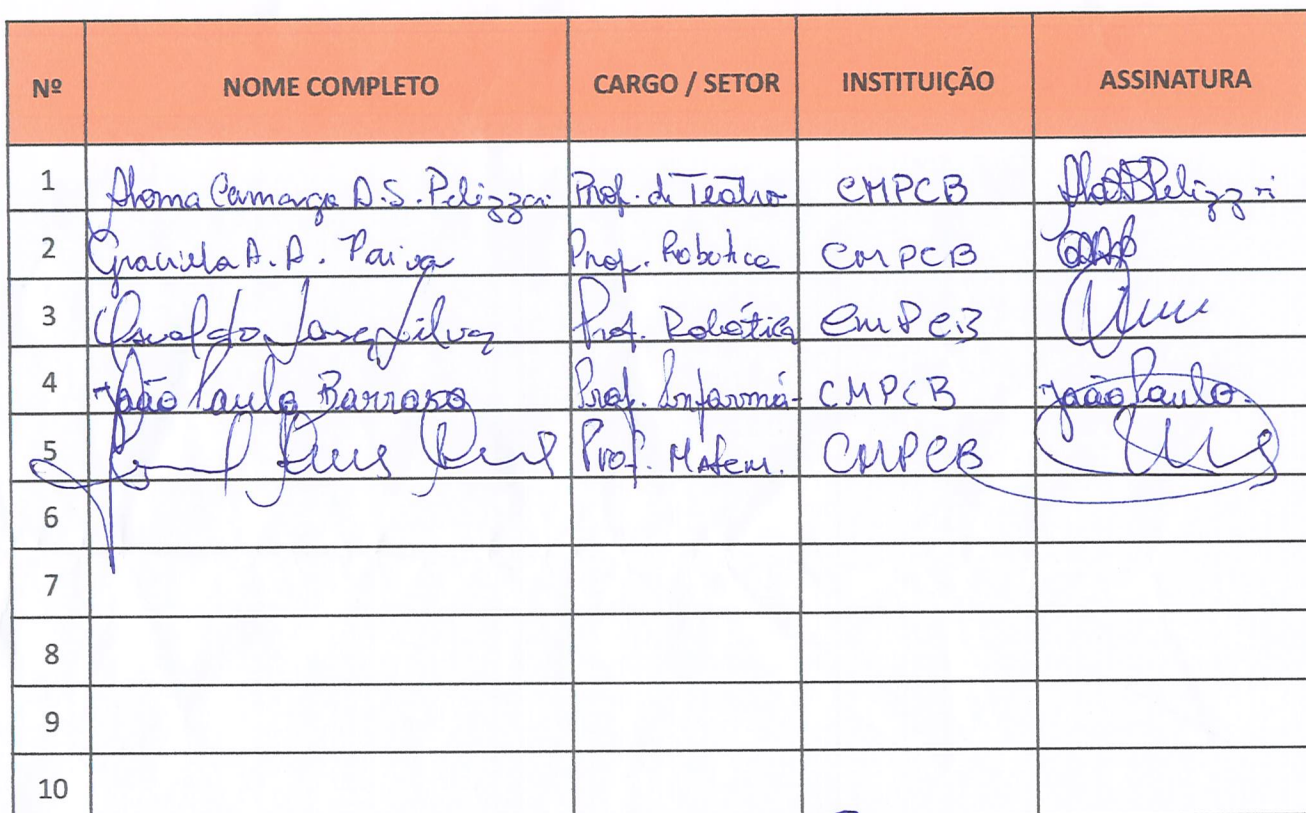 Nº NOME COMPLETO CARGO / SETOR INSTITUIÇÃO ASSINATURA
1 Ahoma Camargo D.S. Pelizzari Prof. de Teatro CMPCB Pelizzri
2 Graciela A. A. Paiva Prof. Robotica CMPCB
3 Osvaldo Jose Silva Prof. Robótica CMPCB
4 João Paulo Barroso Prof. Informá- CMPCB João Paulo.
5 Prof. Matem. CMPCB
6
7
8
9
10